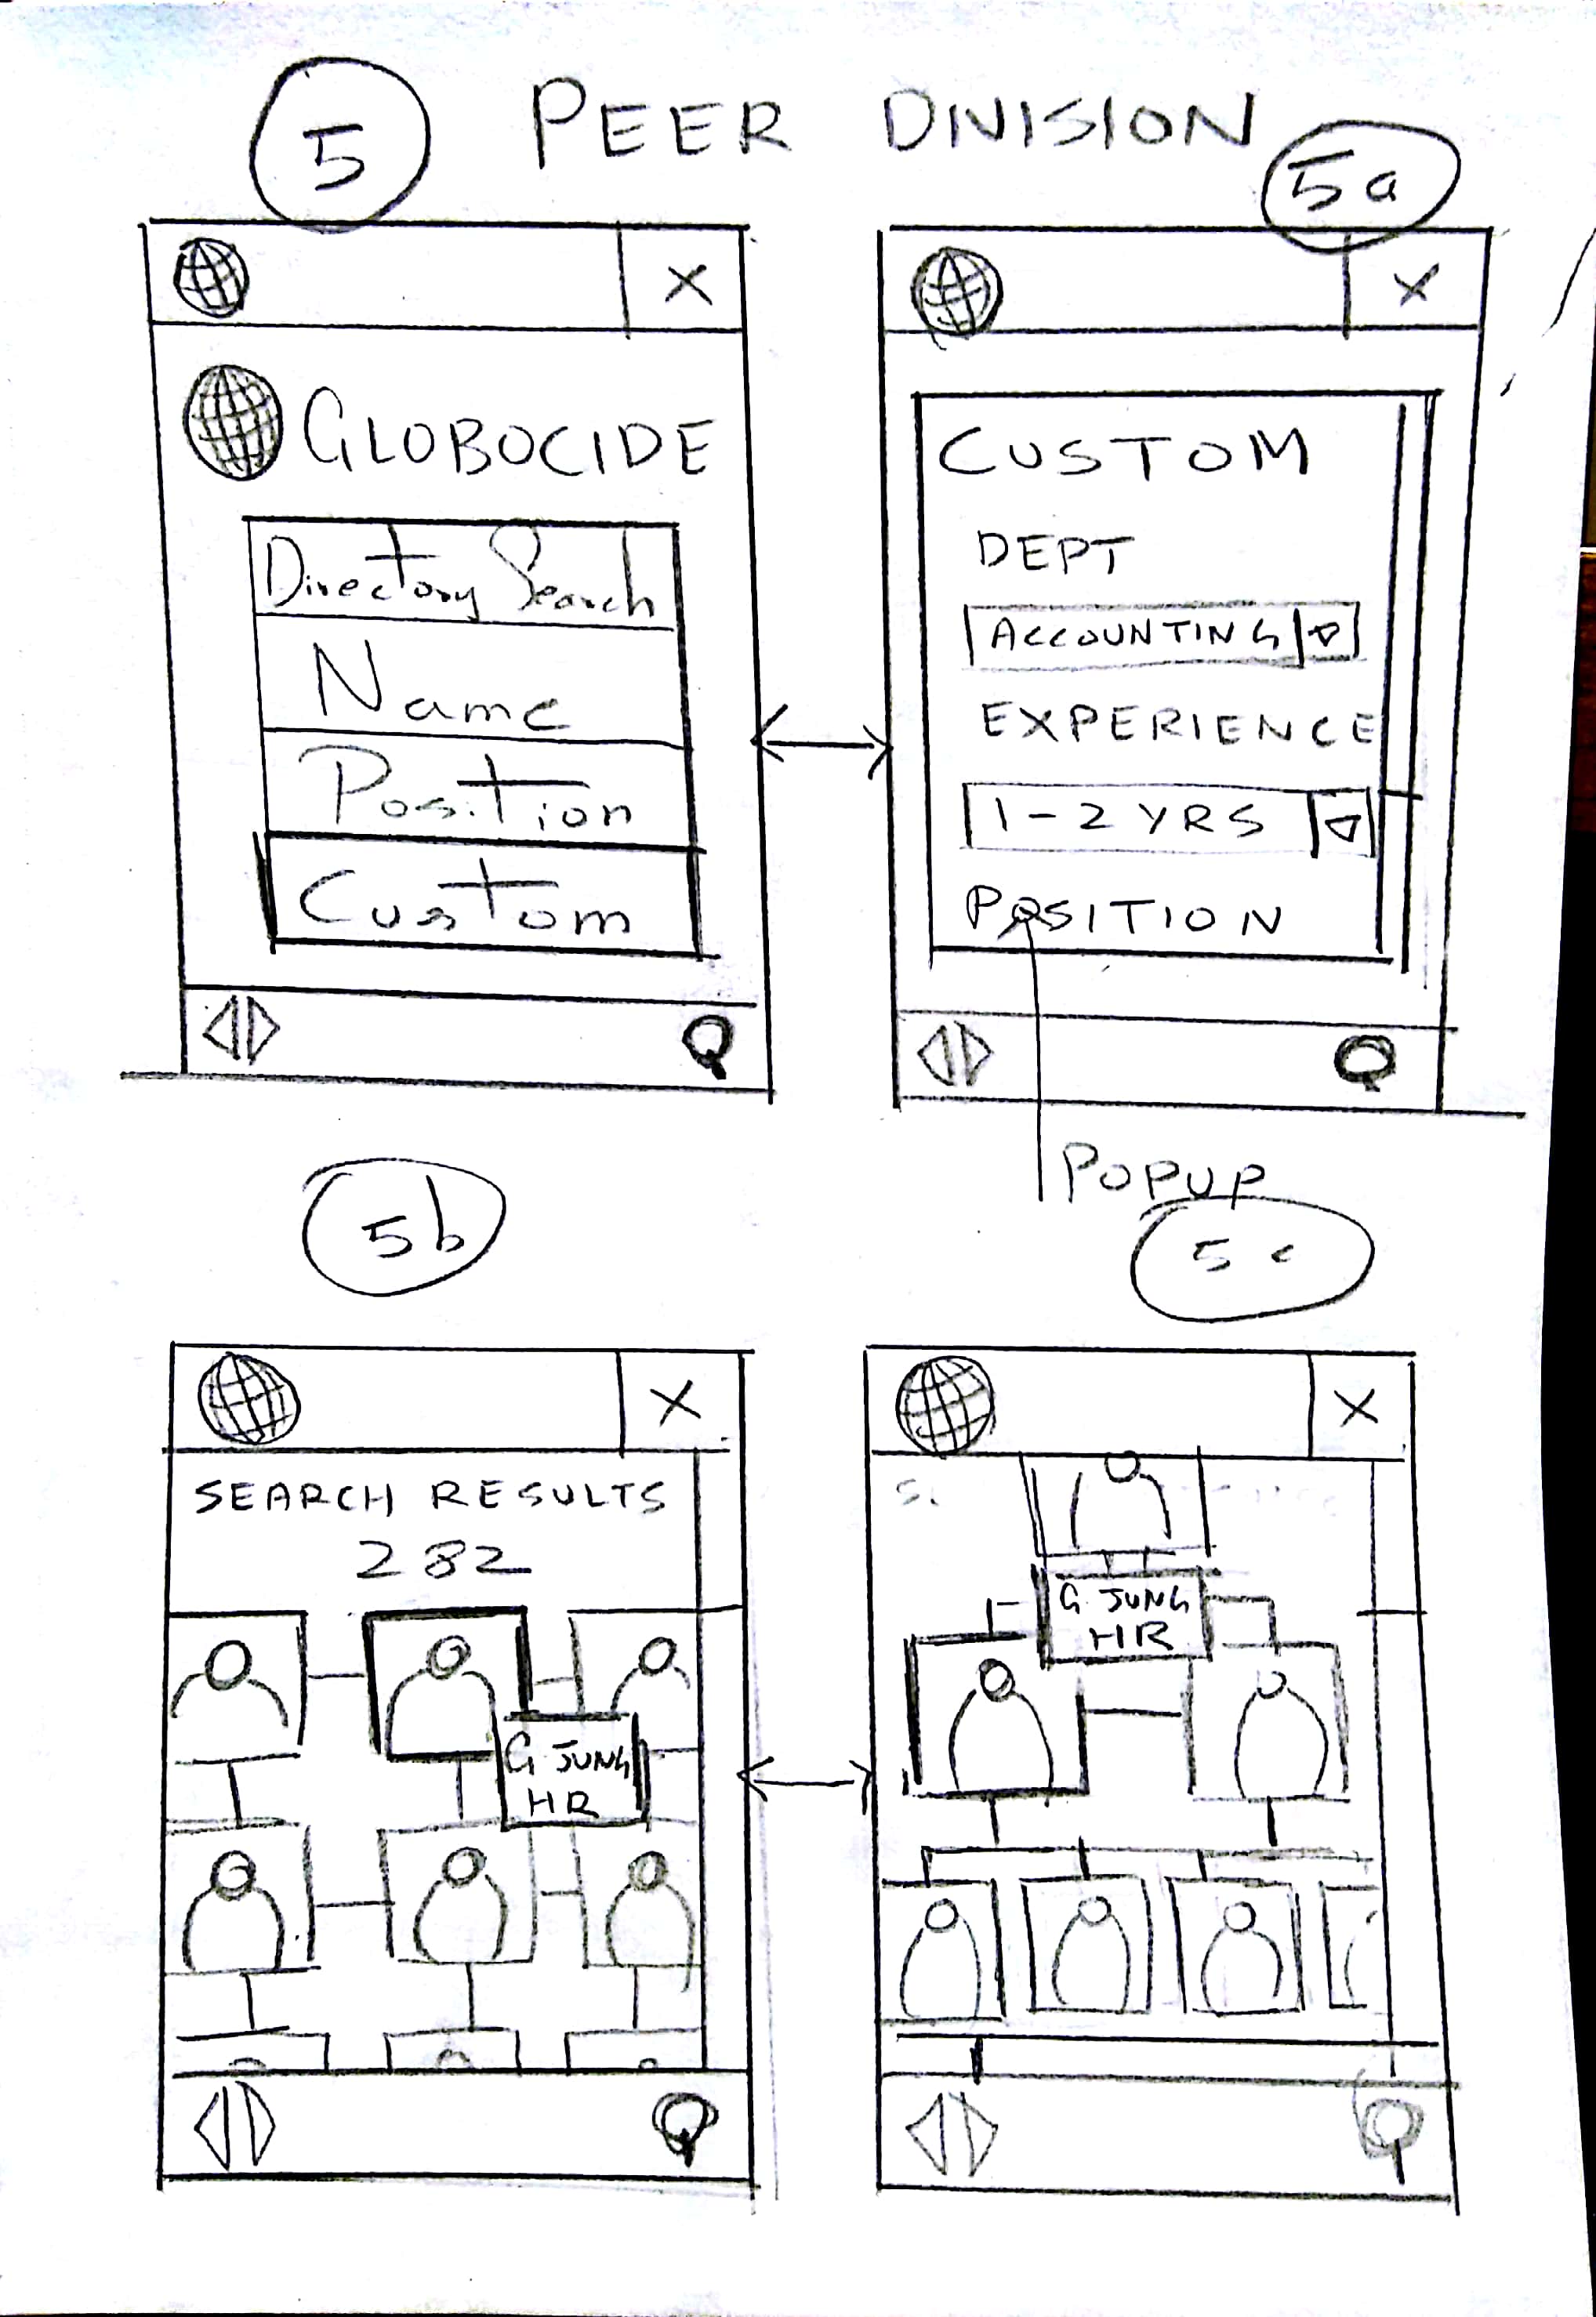 5 PEER DIVISION
5a
X
X
GLOBOCIDE
Directory Search
Name
Position
Custom
CUSTOM
DEPT
ACCOUNTING
EXPERIENCE
1-2 YRS
POSITION
POPUP
5b
5c
X
X
SEARCH RESULTS
282
G JUNG
HR
G. JUNG
HR